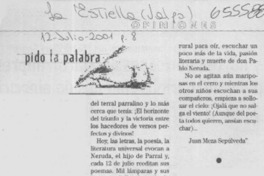 La Estrella (Valpo) 655588
OPINIONES
12-Julio-2001 p. 8
pido la palabra
del terral parralino y lo más
cerca que tenía: ¡El horizonte
del triunfo y la victoria entre
los hacedores de versos per-
fectos y divinos!
Hoy, las letras, la poesía, la
literatura universal evocan a
Neruda, el hijo de Parral y,
cada 12 de julio reeditan sus
poemas. Mil lámparas y sus
rural para oír, escuchar un
poco más de la vida, pasión
literaria y muerte de don Pa-
blo Neruda.
No se agitan aún maripo-
sas en el cerro y mientras los
otros niños escuchan a sus
compañeros, empieza a soli-
citar el cielo: ¡Ojalá que no sal-
ga el viento! (Aunque del poe-
ta todos quieren, ansían escu-
char)..
Juan Meza Sepúlveda"